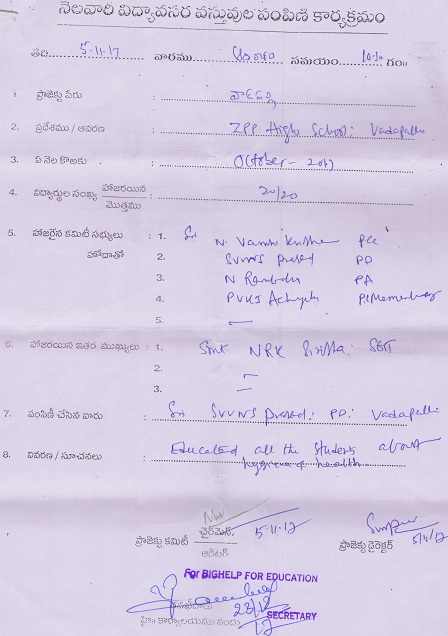 నెలవారి విద్యావసర వస్తువుల పంపిణీ కార్యక్రమం
తేది 5-11-17 వారము సమయం 10-10 గం॥
1. ప్రాజెక్టు పేరు : వాడపల్లి
2. ప్రదేశము / ఆవరణ : ZPP High School: Vadapalli
3. ఏ నెల కొఱకు : October - 2017
4. విద్యార్థుల సంఖ్య హాజరయిన / మొత్తము : 20/20
5. హాజరైన కమిటీ సభ్యులు హోదాతో : 1. Sri N. Vamsi Krishna PCC
2. SVVNS Prasad PD
3. N Rambabu PA
4. PVKS Achyuta PCMember
5. —
6. హాజరయిన ఇతర ముఖ్యులు : 1. Smt NRK Sirisha: SGT
2. —
3. —
7. పంపిణీ చేసిన వారు : Sri SVVNS Prasad: PD: Vadapalli
8. వివరణ / సూచనలు : Educated all the students about
hygiene & health
ప్రాజెక్టు కమిటీ చైర్‌మెన్. / ఆడిటర్ 5-11-17 ప్రాజెక్టు డైరెక్టర్ 5/11/17
For BIGHELP FOR EDUCATION
తనిఖీదారు
SECRETARY
హై॥ కార్యాలయము నందు